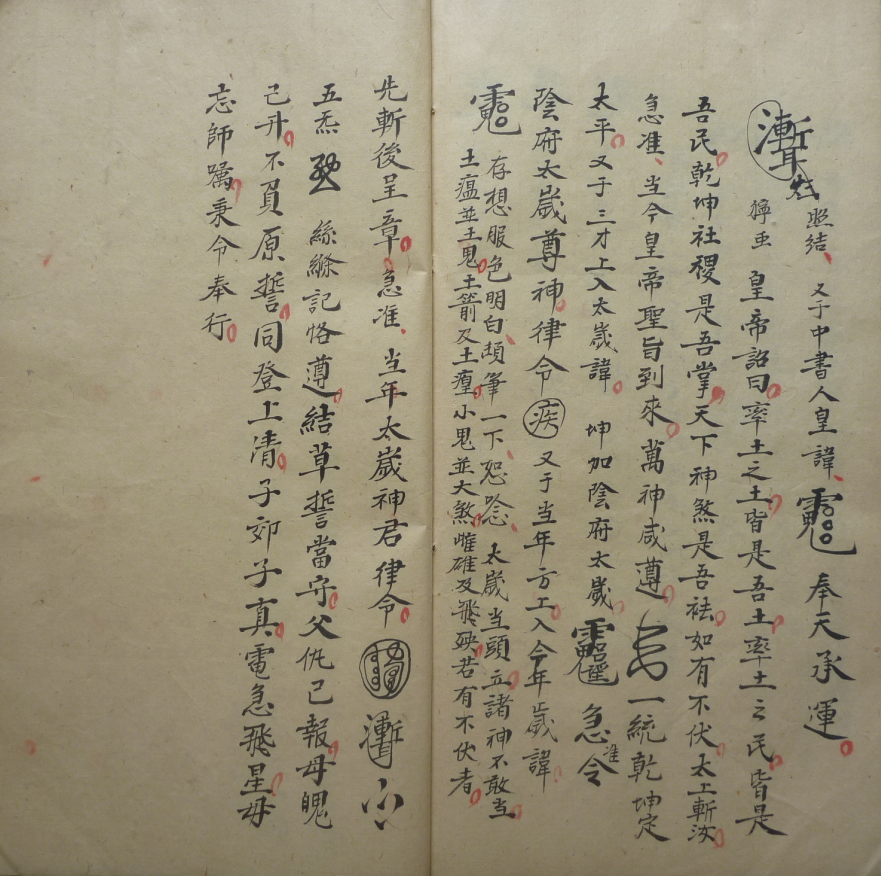 照結又于中書人皇諱奉天承運
皇帝詔曰率土之土皆是吾土率土之民皆是
吾民乾坤社稷是吾掌天下神煞是吾袪如有不伏太上斬汝
急准当今皇帝聖旨到來萬神咸遵一統乾坤定
太平又于三才上入太歲諱坤加陰府太歲急准令
陰府太歲尊神律令疾又于当年方上入今年歲諱
存想服色明白頑筆一下恕唸太歲当頭立諸神不敢当
土瘟並土鬼土箭及土瘟小鬼並大煞雌雄及飛殃若有不伏者
先斬後呈章急准当年太歲神君律令
五炁絲縧記恪遵結草誓當守父仇已報母魄
己升不負原誓同登上清子卯子真電急飛星毋
忘師囑秉令奉行